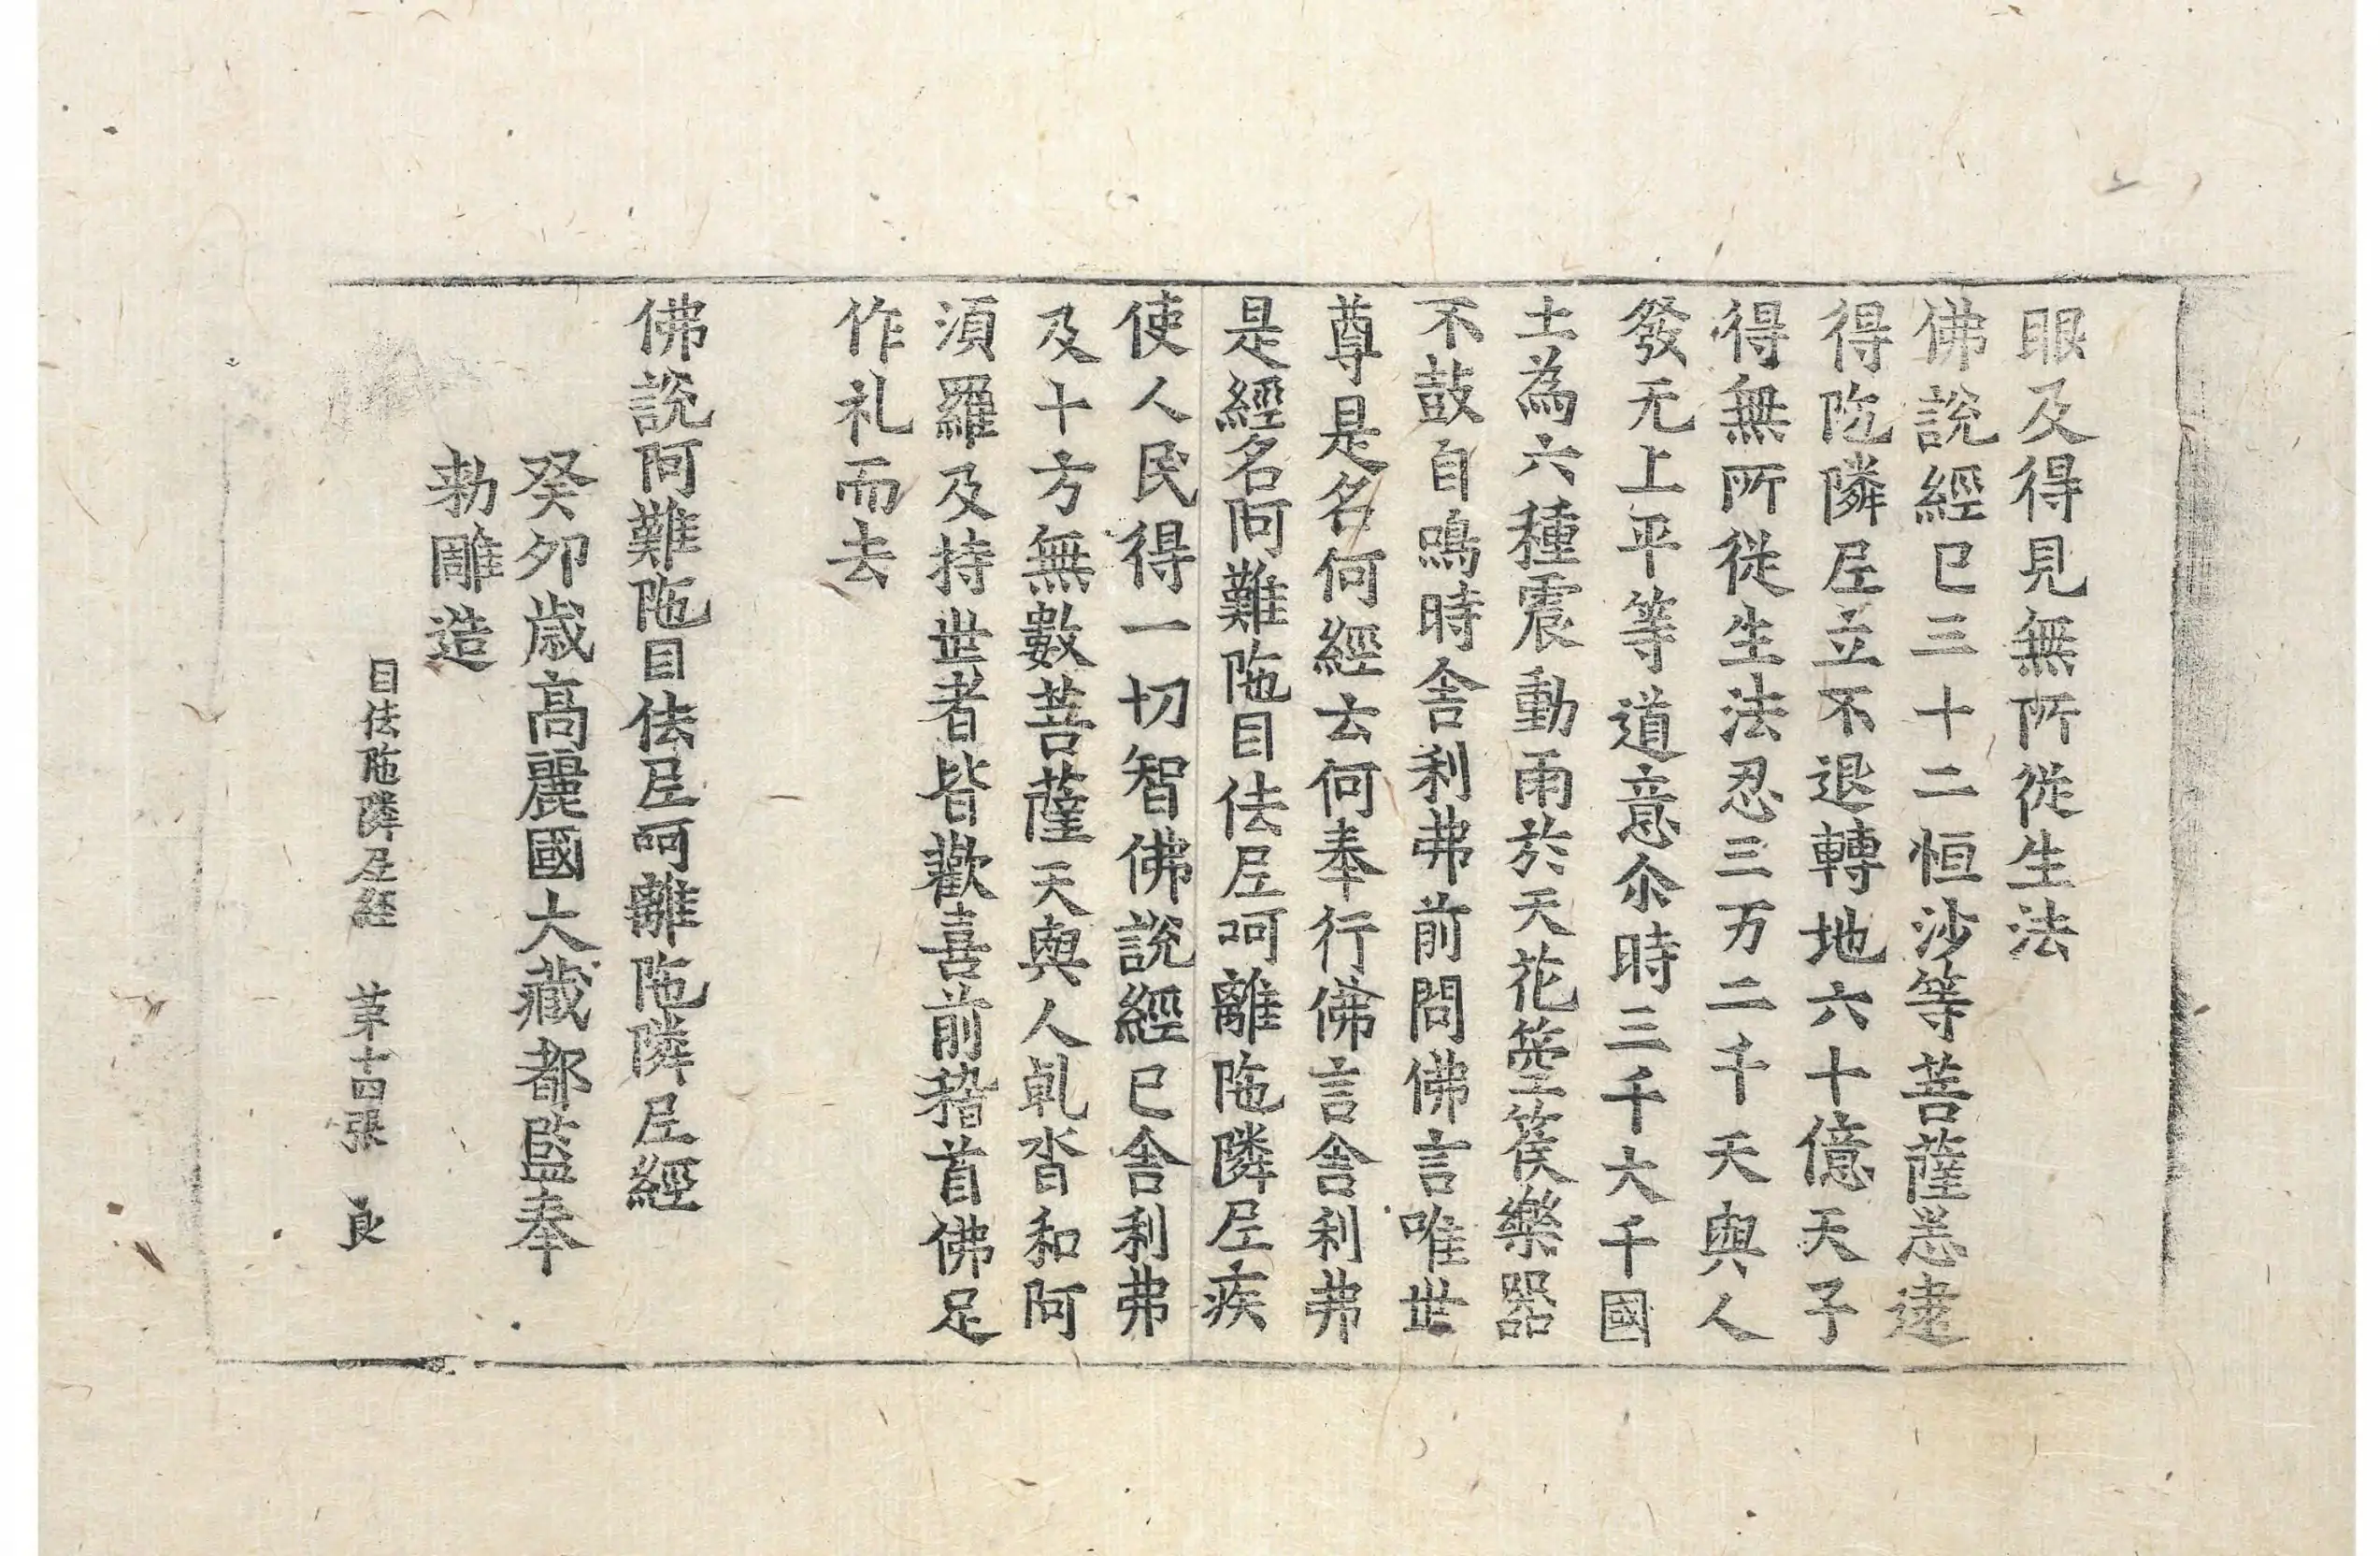 眼及得見無所從生法
佛說經已三十二恒沙等菩薩悉逮
得陁隣尼立不退轉地六十億天子
得無所從生法忍三万二千天與人
發无上平等道意尒時三千大千國
土為六種震動雨於天花箜篌樂器
不鼓自鳴時舍利弗前問佛言唯世
尊是名何經云何奉行佛言舍利弗
是經名阿難陁目佉尼呵離陁隣尼疾
使人民得一切智佛說經已舍利弗
及十方無數菩薩天與人乹沓和阿
須羅及持世者皆歡喜前稽首佛足
作礼而去
佛說阿難陁目佉尼呵離陁隣尼經
癸卯歲高麗國大藏都監奉
勑雕造
目佉陁隣尼經 第十四張 良